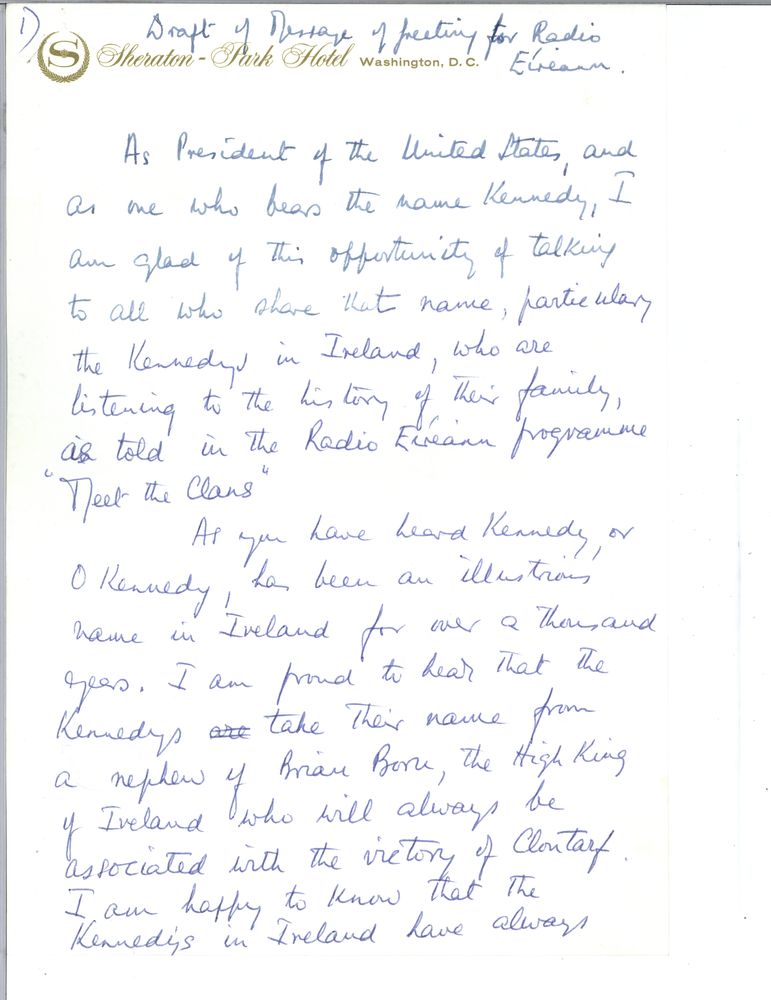 1) Draft of Message of greeting for Radio
Eíreann.
S Sheraton-Park Hotel Washington, D.C.
As President of the United States, and
as one who bears the name Kennedy, I
am glad of this opportunity of talking
to all who share that name, particulary
the Kennedys in Ireland, who are
listening to the history of their family,
as told in the Radio Eíreann programme
"Meet the Clans"
As you have heard Kennedy, or
O Kennedy, has been an illustrious
name in Ireland for over a thousand
years. I am proud to hear that the
Kennedys are take their name from
a nephew of Brian Boru, the High King
of Ireland who will always be
associated with the victory of Clontarf.
I am happy to know that the
Kennedys in Ireland have always